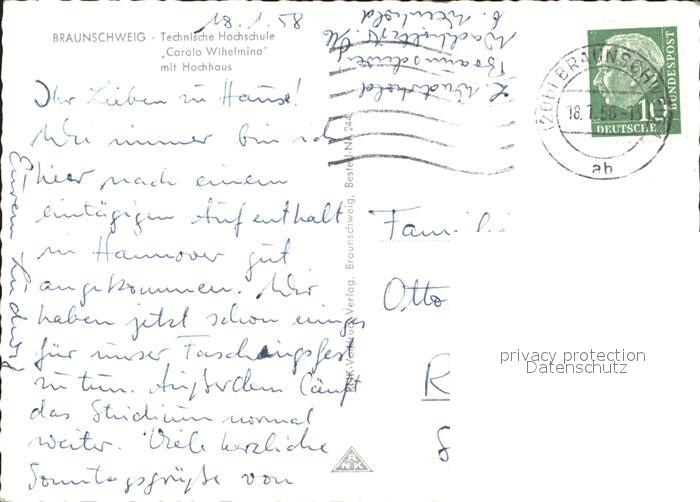 18.1.58
BRAUNSCHWEIG · Technische Hochschule
„Carolo Wihelmina"
mit Hochhaus
Ihr Lieben zu Hause!
Wie immer bin ich
hier nach einem
eintägigen Aufenthalt
in Hannover gut
angekommen. Wir
haben jetzt schon einiges
für unser Faschingsfest
zu tun. Außerdem läuft
das Studium normal
weiter. Viele herzliche
Sonntagsgrüße von
Eurem
Braunschweig
Verlag, Braunschweig, Bestell-Nr. 244
RNK
(20b) BRAUNSCHWEIG
18.1.58
ab
10
DEUTSCHE
BUNDESPOST
Famili
Otto
R
privacy protection
Datenschutz